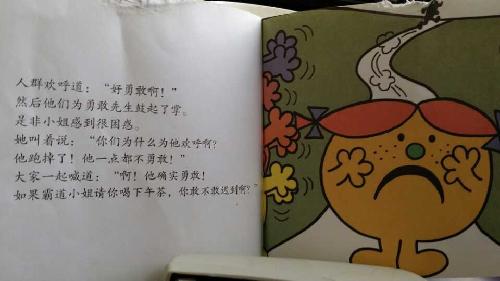 人群欢呼道：“好勇敢啊！”
然后他们为勇敢先生鼓起了掌。
是非小姐感到很困惑。
她叫着说：“你们为什么为他欢呼啊？
他跑掉了！他一点都不勇敢！”
大家一起喊道：“啊！他确实勇敢！
如果霸道小姐请你喝下午茶，你敢不敢迟到啊？”